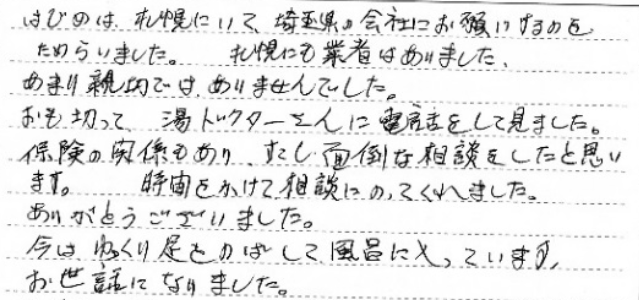 はじめは、札幌にいて、埼玉県の会社にお願いするのを
ためらいました。 札幌にも業者はありました、
あまり親切では、ありませんでした。
おも切って、湯ドクターさんに電話をして見ました。
保険の関係もあり、すこし面倒な相談をしたと思い
ます。 時間をかけて相談にのってくれました。
ありがとうございました。
今は、ゆっくり足をのばして風呂に入っています、
お世話になりました。